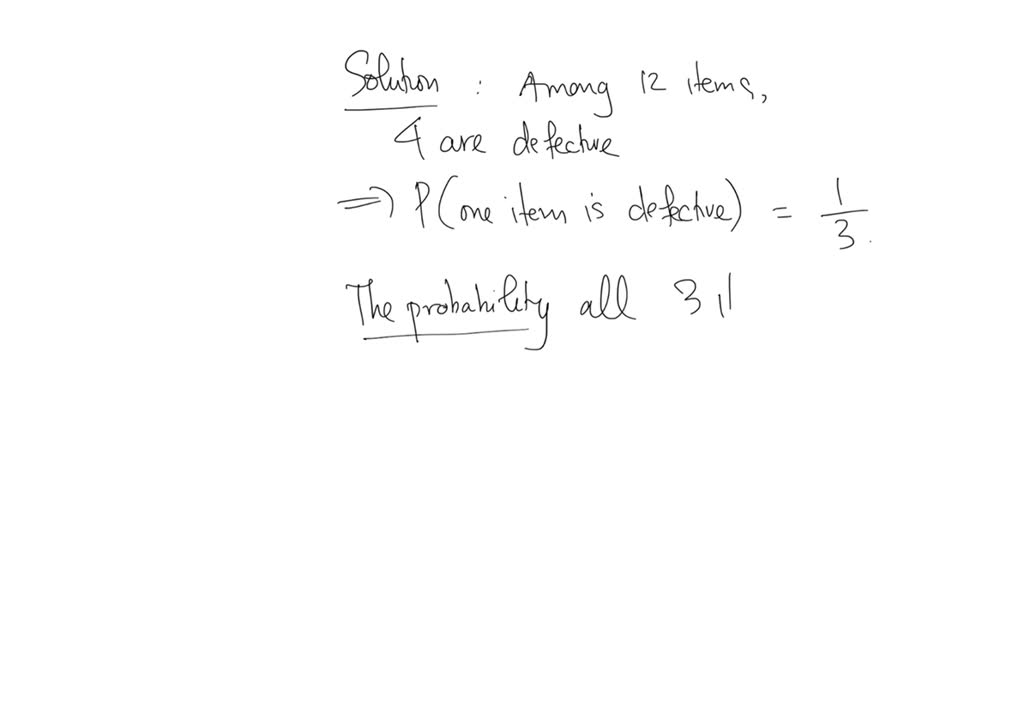 Solution : Among 12 items,
4 are defective
⇒ P(one item is defective) = 1/3.
The probability all 3